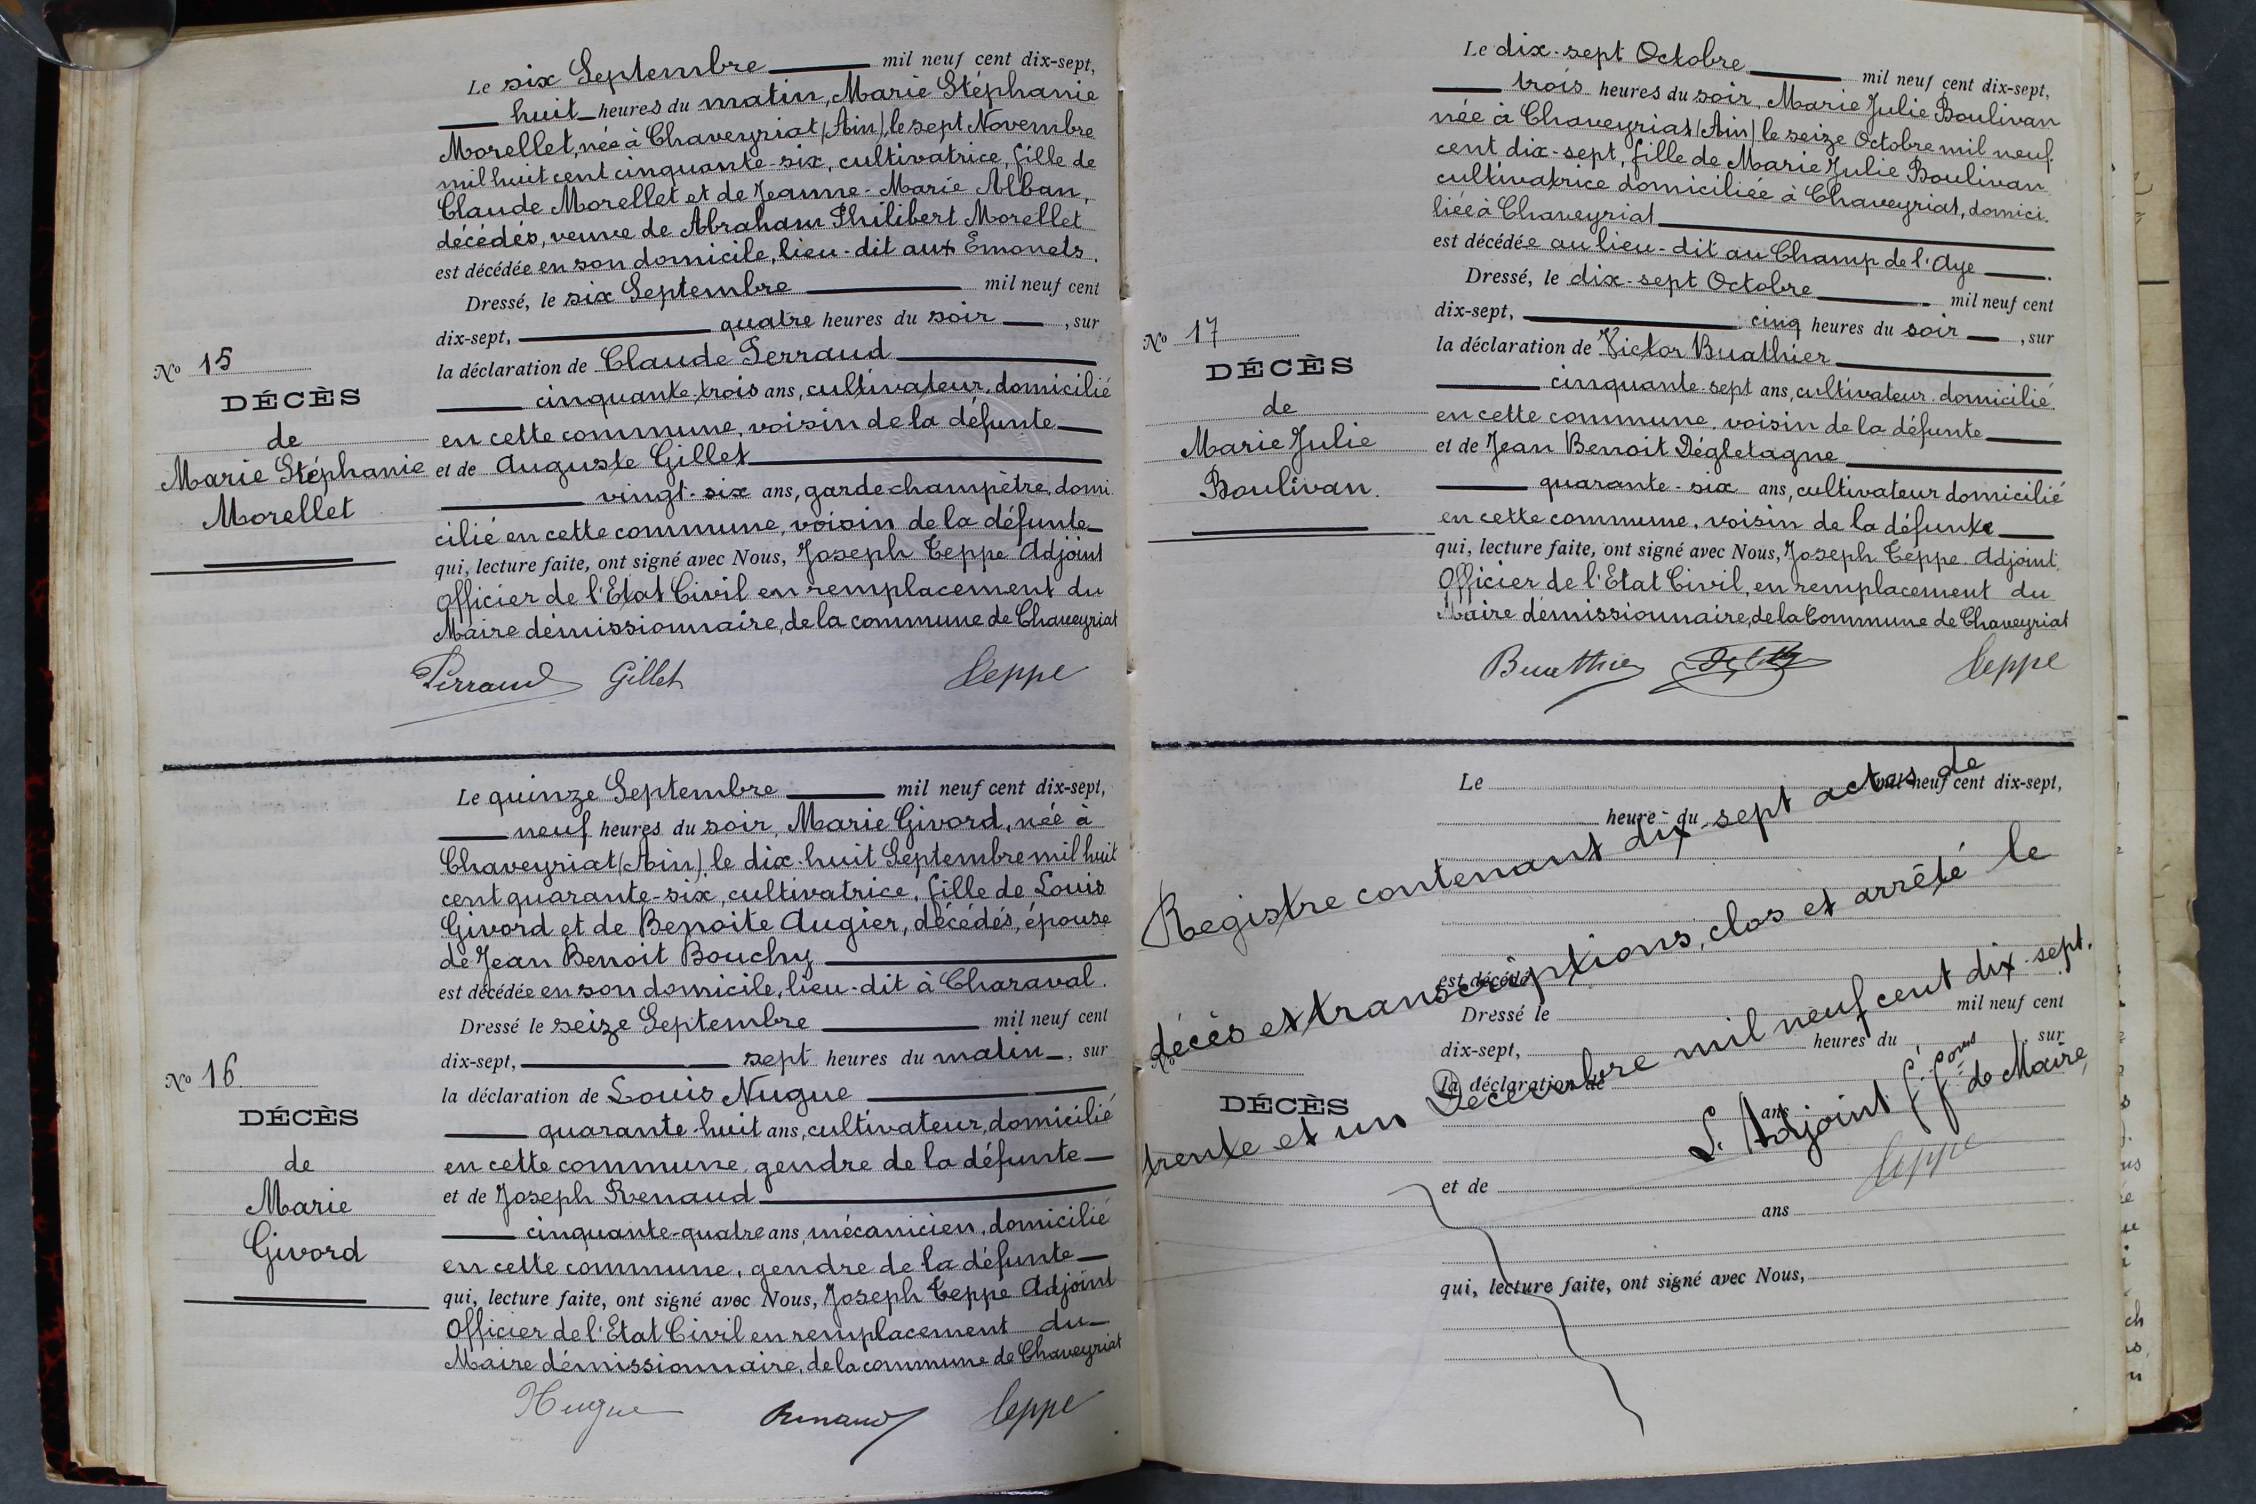 Le six Septembre mil neuf cent dix-sept,
huit heures du matin, Marie Stéphanie
Morellet, née à Chaveyriat (Ain), le sept Novembre
mil huit cent cinquante-six, cultivatrice, fille de
Claude Morellet et de Jeanne-Marie Alban,
décédés, veuve de Abraham Philibert Morellet
est décédée en son domicile, lieu-dit aux Emonets.
Dressé, le six Septembre mil neuf cent
dix-sept, quatre heures du soir, sur
la déclaration de Claude Perraud
cinquante-trois ans, cultivateur, domicilié
en cette commune, voisin de la défunte
et de Auguste Gillet
vingt-six ans, garde champêtre, domi
cilié en cette commune, voisin de la défunte
qui, lecture faite, ont signé avec Nous, Joseph Teppe Adjoint
Officier de l'Etat Civil en remplacement du
Maire démissionnaire, de la commune de Chaveyriat
Perraud Gillet Teppe
No 15
DÉCÈS
de
Marie Stéphanie
Morellet
Le quinze Septembre mil neuf cent dix-sept,
neuf heures du soir, Marie Givord, née à
Chaveyriat (Ain), le dix-huit Septembre mil huit
cent quarante-six, cultivatrice, fille de Louis
Givord et de Benoite Augier, décédés, épouse
de Jean Benoit Bouchy
est décédée en son domicile, lieu-dit à Charaval.
Dressé le seize Septembre mil neuf cent
dix-sept, sept heures du matin, sur
la déclaration de Louis Nugue
quarante-huit ans, cultivateur, domicilié
en cette commune, gendre de la défunte
et de Joseph Renaud
cinquante-quatre ans, mécanicien, domicilié
en cette commune, gendre de la défunte
qui, lecture faite, ont signé avec Nous, Joseph Teppe Adjoint
Officier de l'Etat Civil en remplacement du
Maire démissionnaire, de la commune de Chaveyriat
Nugue Renaud Teppe
No 16
DÉCÈS
de
Marie
Givord
Le dix-sept Octobre mil neuf cent dix-sept,
trois heures du soir, Marie Julie Boulivan
née à Chaveyriat (Ain) le seize Octobre mil neuf
cent dix-sept, fille de Marie Julie Boulivan
cultivatrice domiciliée à Chaveyriat, domici
liée à Chaveyriat
est décédée au lieu-dit au Champ de l'Aye
Dressé, le dix-sept Octobre mil neuf cent
dix-sept, cinq heures du soir, sur
la déclaration de Victor Buathier
cinquante-sept ans, cultivateur domicilié
en cette commune, voisin de la défunte
et de Jean Benoit Dégletagne
quarante-six ans, cultivateur domicilié
en cette commune, voisin de la défunte
qui, lecture faite, ont signé avec Nous, Joseph Teppe Adjoint
Officier de l'Etat Civil, en remplacement du
Maire démissionnaire, de la Commune de Chaveyriat
Buathier Teppe
No 17
DÉCÈS
de
Marie Julie
Boulivan.
Le mil neuf cent dix-sept,
heure du
est décédé
Dressé le mil neuf cent
dix-sept, heures du , sur
la déclaration de
ans
et de
ans
qui, lecture faite, ont signé avec Nous,
No
DÉCÈS
Registre contenant dix-sept actes de
décès et transcriptions, clos et arrêté le
trente et un Décembre mil neuf cent dix-sept.
L'Adjoint f.f. de Maire,
Teppe